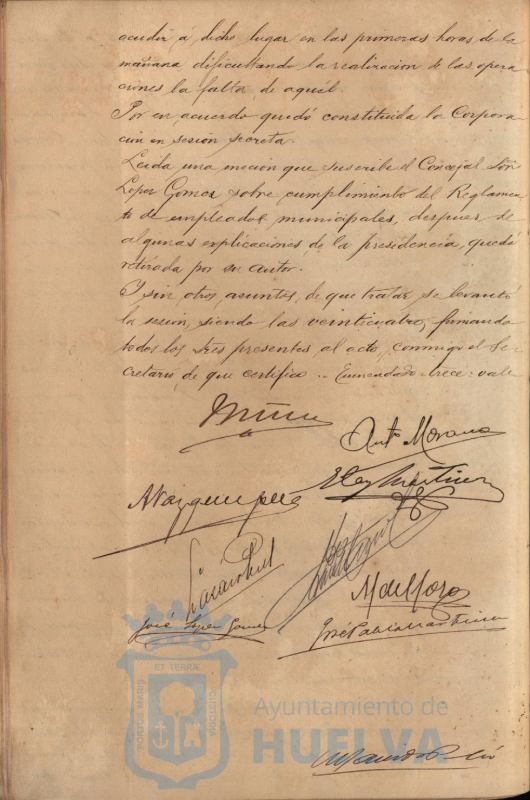 acudir a dicho lugar en las primeras horas de la
mañana dificultando la realizacion de las opera
ciones la falta de aquél.
Por en acuerdo quedó constituida la Corpora
cion en sesión secreta.
Leida una moción que suscribe el Concejal Sór
Lopez Gomez sobre cumplimiento del Reglamen
to de empleados municipales, despues de
algunas explicaciones de la presidencia, quedó
retirada por su autor.
Y sin otros asuntos de que tratar se levantó
la sesión, siendo las veinticuatro, firmando
todos los Sres presentes al acto, conmigo el Se
cretario, de que certifico .. Enmendado trece: vale
Antº Moreno
Eloy Martinez
A Vazquez
M de Mora
José Lopez Gomez
José Pablo Martinez
PORTUS MARIS ET TERRÆ CUSTODIA
Ayuntamiento de
HUELVA